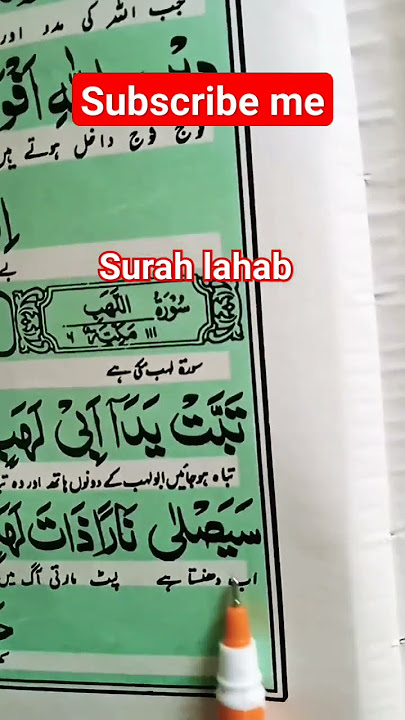 جب اللہ کی مدد اور
Subscribe me
فوج فوج داخل ہوتے ہیں
Surah lahab
سُوْرَةُ اللَّهَبِ
٦ مَكِّيَّةٌ ١١١
سورۃ لہب مکی ہے
تَبَّتْ يَدَآ اَبِيْ لَهَبٍ
تباہ ہوجائیں ابولہب کے دونوں ہاتھ اور وہ
سَيَصْلٰى نَارًا ذَاتَ لَهَبٍ
اب دھنستا ہے لپٹ مارتی آگ میں